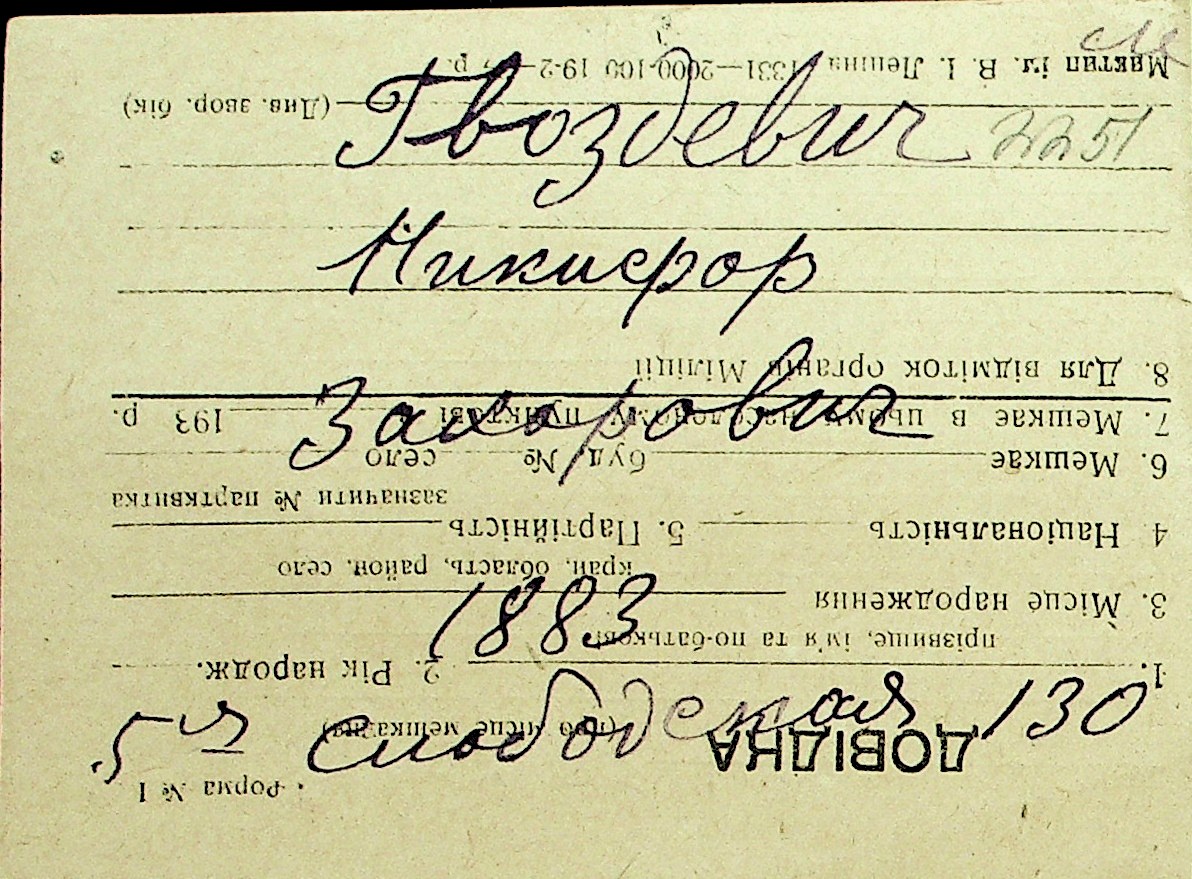 Гвоздевич 2251
Никифор
Захарович
1883
5 ая Слободская 130
Форма № 1
ДОВІДНА
(про місце мешкання)
1. 2. Рік народж.
прізвище, ім'я та по-батькові
3. Місце народження
край, область, район, село
4 Національність 5. Партійність
зазначити № партквитка
6. Мешкає буд № село
7. Мешкає в цьому населеному пункті 193 р.
8. Для відміток органів Міліції
(Див. звор. бік)
ім. В. І. Леніна 1331—2000-100 19-2 р.